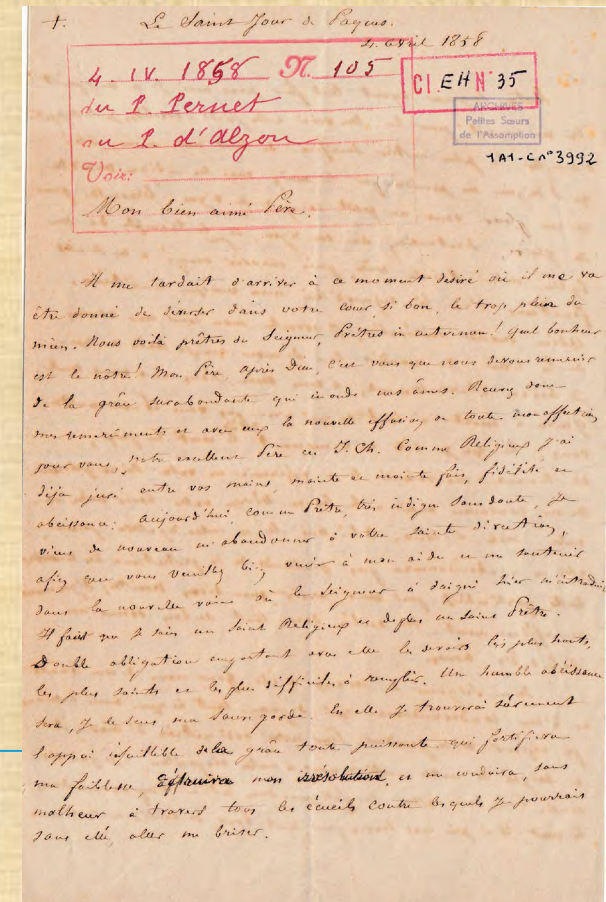 +. Le Saint Jour de Pâques.
4. avril 1858
4. IV. 1858 N. 105
du P. Pernet
au P. d'Alzon
Voir:
CI. EH N° 35
ARCHIVES
Petites Sœurs
de l'Assomption
1A1-C n° 3992
Mon bien aimé Père.
Il me tardait d'arriver à ce moment désiré où il me va
être donné de déverser dans votre cœur, si bon, le trop plein du
mien. Nous voilà prêtres du Seigneur, Prêtres in aeternum! quel bonheur
est le nôtre! Mon Père, après Dieu, c'est vous que nous devons remercier
de la grâce surabondante qui inonde nos âmes. Recevez donc
mes remerciments et avec eux la nouvelle effusion de toute mon affection
pour vous, notre excellent Père en J. Ch. Comme Religieux j'ai
déjà juré entre vos mains, mainte et mainte fois, fidélité et
obéissance; aujourd'hui, comme Prêtre, très indigne sans doute, je
viens de nouveau m'abandonner à votre sainte direction,
afin que vous veuillez bien venir à mon aide et me soutenir
dans la nouvelle voie où le Seigneur a daigné hier m'introduire
Il faut que je sois un saint Religieux et de plus un saint Prêtre.
Double obligation emportant avec elle les devoirs les plus hauts,
les plus saints et les plus difficiles à remplir. Un humble obéissance
sera, je le sens, ma sauvegarde. En elle je trouverai sûrement
l'appui infaillible de la grâce toute puissante qui fortifiera
ma faiblesse, détruira mon irrésolution, et me conduira, sans
malheur à travers tous les écueils contre lesquels je pourrais
sans elle, aller me briser.